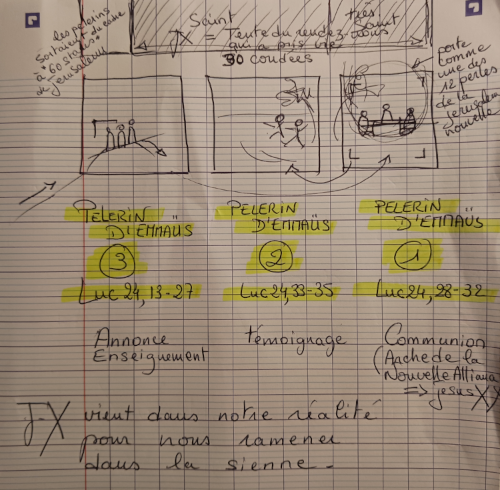 Saint
très
Saint
JX = Tente du rendez-vous
qui a pris
30 coudées
les pelerins
Sortaient du cadre
à "60 stades" de
Jerusalem
porte
comme
une des
12 perles
de la
Jerusalem
nouvelle
PELERIN
D'EMMAÜS
3
Luc 24, 13-27
Annonce
Enseignement
PELERIN
D'EMMAÜS
2
Luc 24, 33-35
témoignage
PELERIN
D'EMMAÜS
1
Luc 24, 28-32
Communion
(Arche de la
Nouvelle Alliance
=> jesus X
JX vient dans notre réalité
pour nous ramener
dans la sienne.